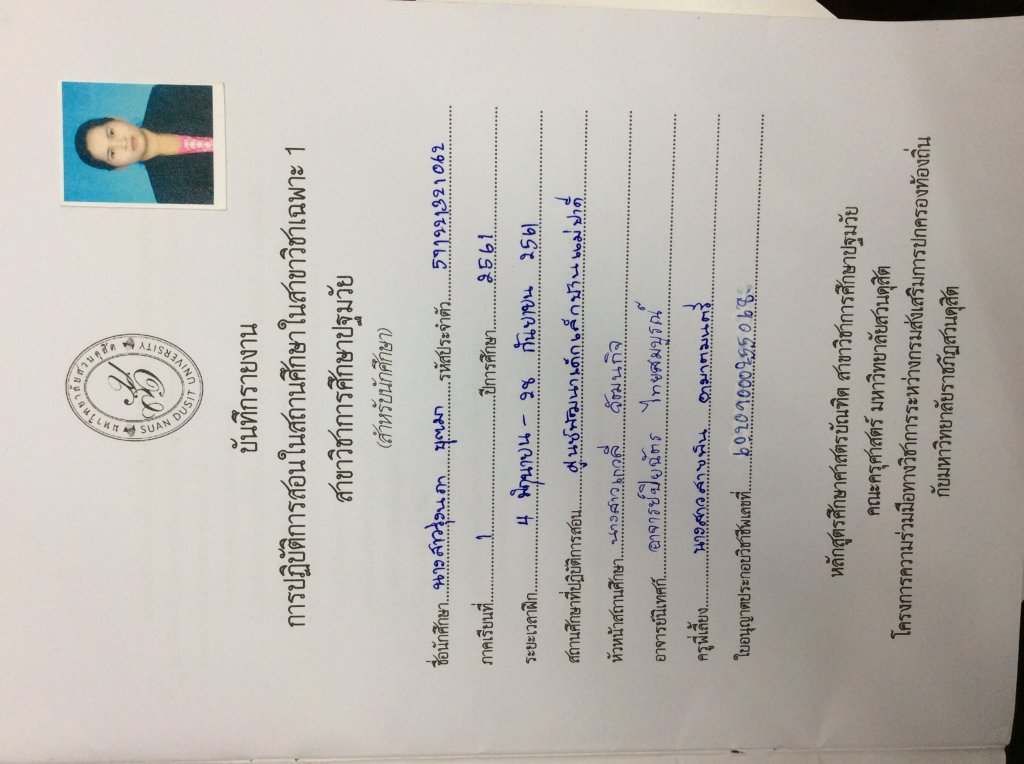 มหาวิทยาลัยสวนดุสิต
SUAN DUSIT UNIVERSITY
บันทึกรายงาน
การปฏิบัติการสอนในสถานศึกษาในสาขาวิชาเฉพาะ 1
สาขาวิชาการศึกษาปฐมวัย
(สำหรับนักศึกษา)
ชื่อนักศึกษา นางสาว รหัสประจำตัว
ภาคเรียนที่ 1 ปีการศึกษา 2561
ระยะเวลาฝึก 4 มิถุนายน - ๒๘ กันยายน 2561
สถานศึกษาที่ปฏิบัติการสอน ศูนย์พัฒนาเด็กเล็กบ้านแม่ปาคี
หัวหน้าสถานศึกษา นางสาวเกวลี วัฒนกิจ
อาจารย์นิเทศก์ อาจารย์ปิยฉัตร ไทยสมบูรณ์
ครูพี่เลี้ยง นางสาวสายพิน อามาตมนตรี
ใบอนุญาตประกอบวิชาชีพเลขที่
หลักสูตรศึกษาศาสตรบัณฑิต สาขาวิชาการศึกษาปฐมวัย
คณะครุศาสตร์ มหาวิทยาลัยสวนดุสิต
โครงการความร่วมมือทางวิชาการระหว่างกรมส่งเสริมการปกครองท้องถิ่น
กับมหาวิทยาลัยราชภัฏสวนดุสิต